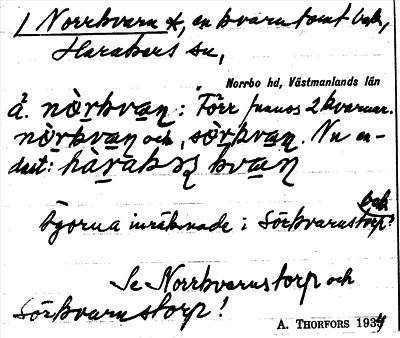 1 Norrkvarn *, en kvarntomt bek,
Harakers sn,
Norrbo hd, Västmanlands län
å. nòrkvan : Förr funnos 2 kvarnar.
nòrkvan och sòrkvan. Nu en-
dast: hàrakəʂ kvan
bek.
Ägorna inräknade i Sörkvarnstorp!
Se Norrkvarnstorp och
Sörkvarnstorp!
A. THORFORS 1934